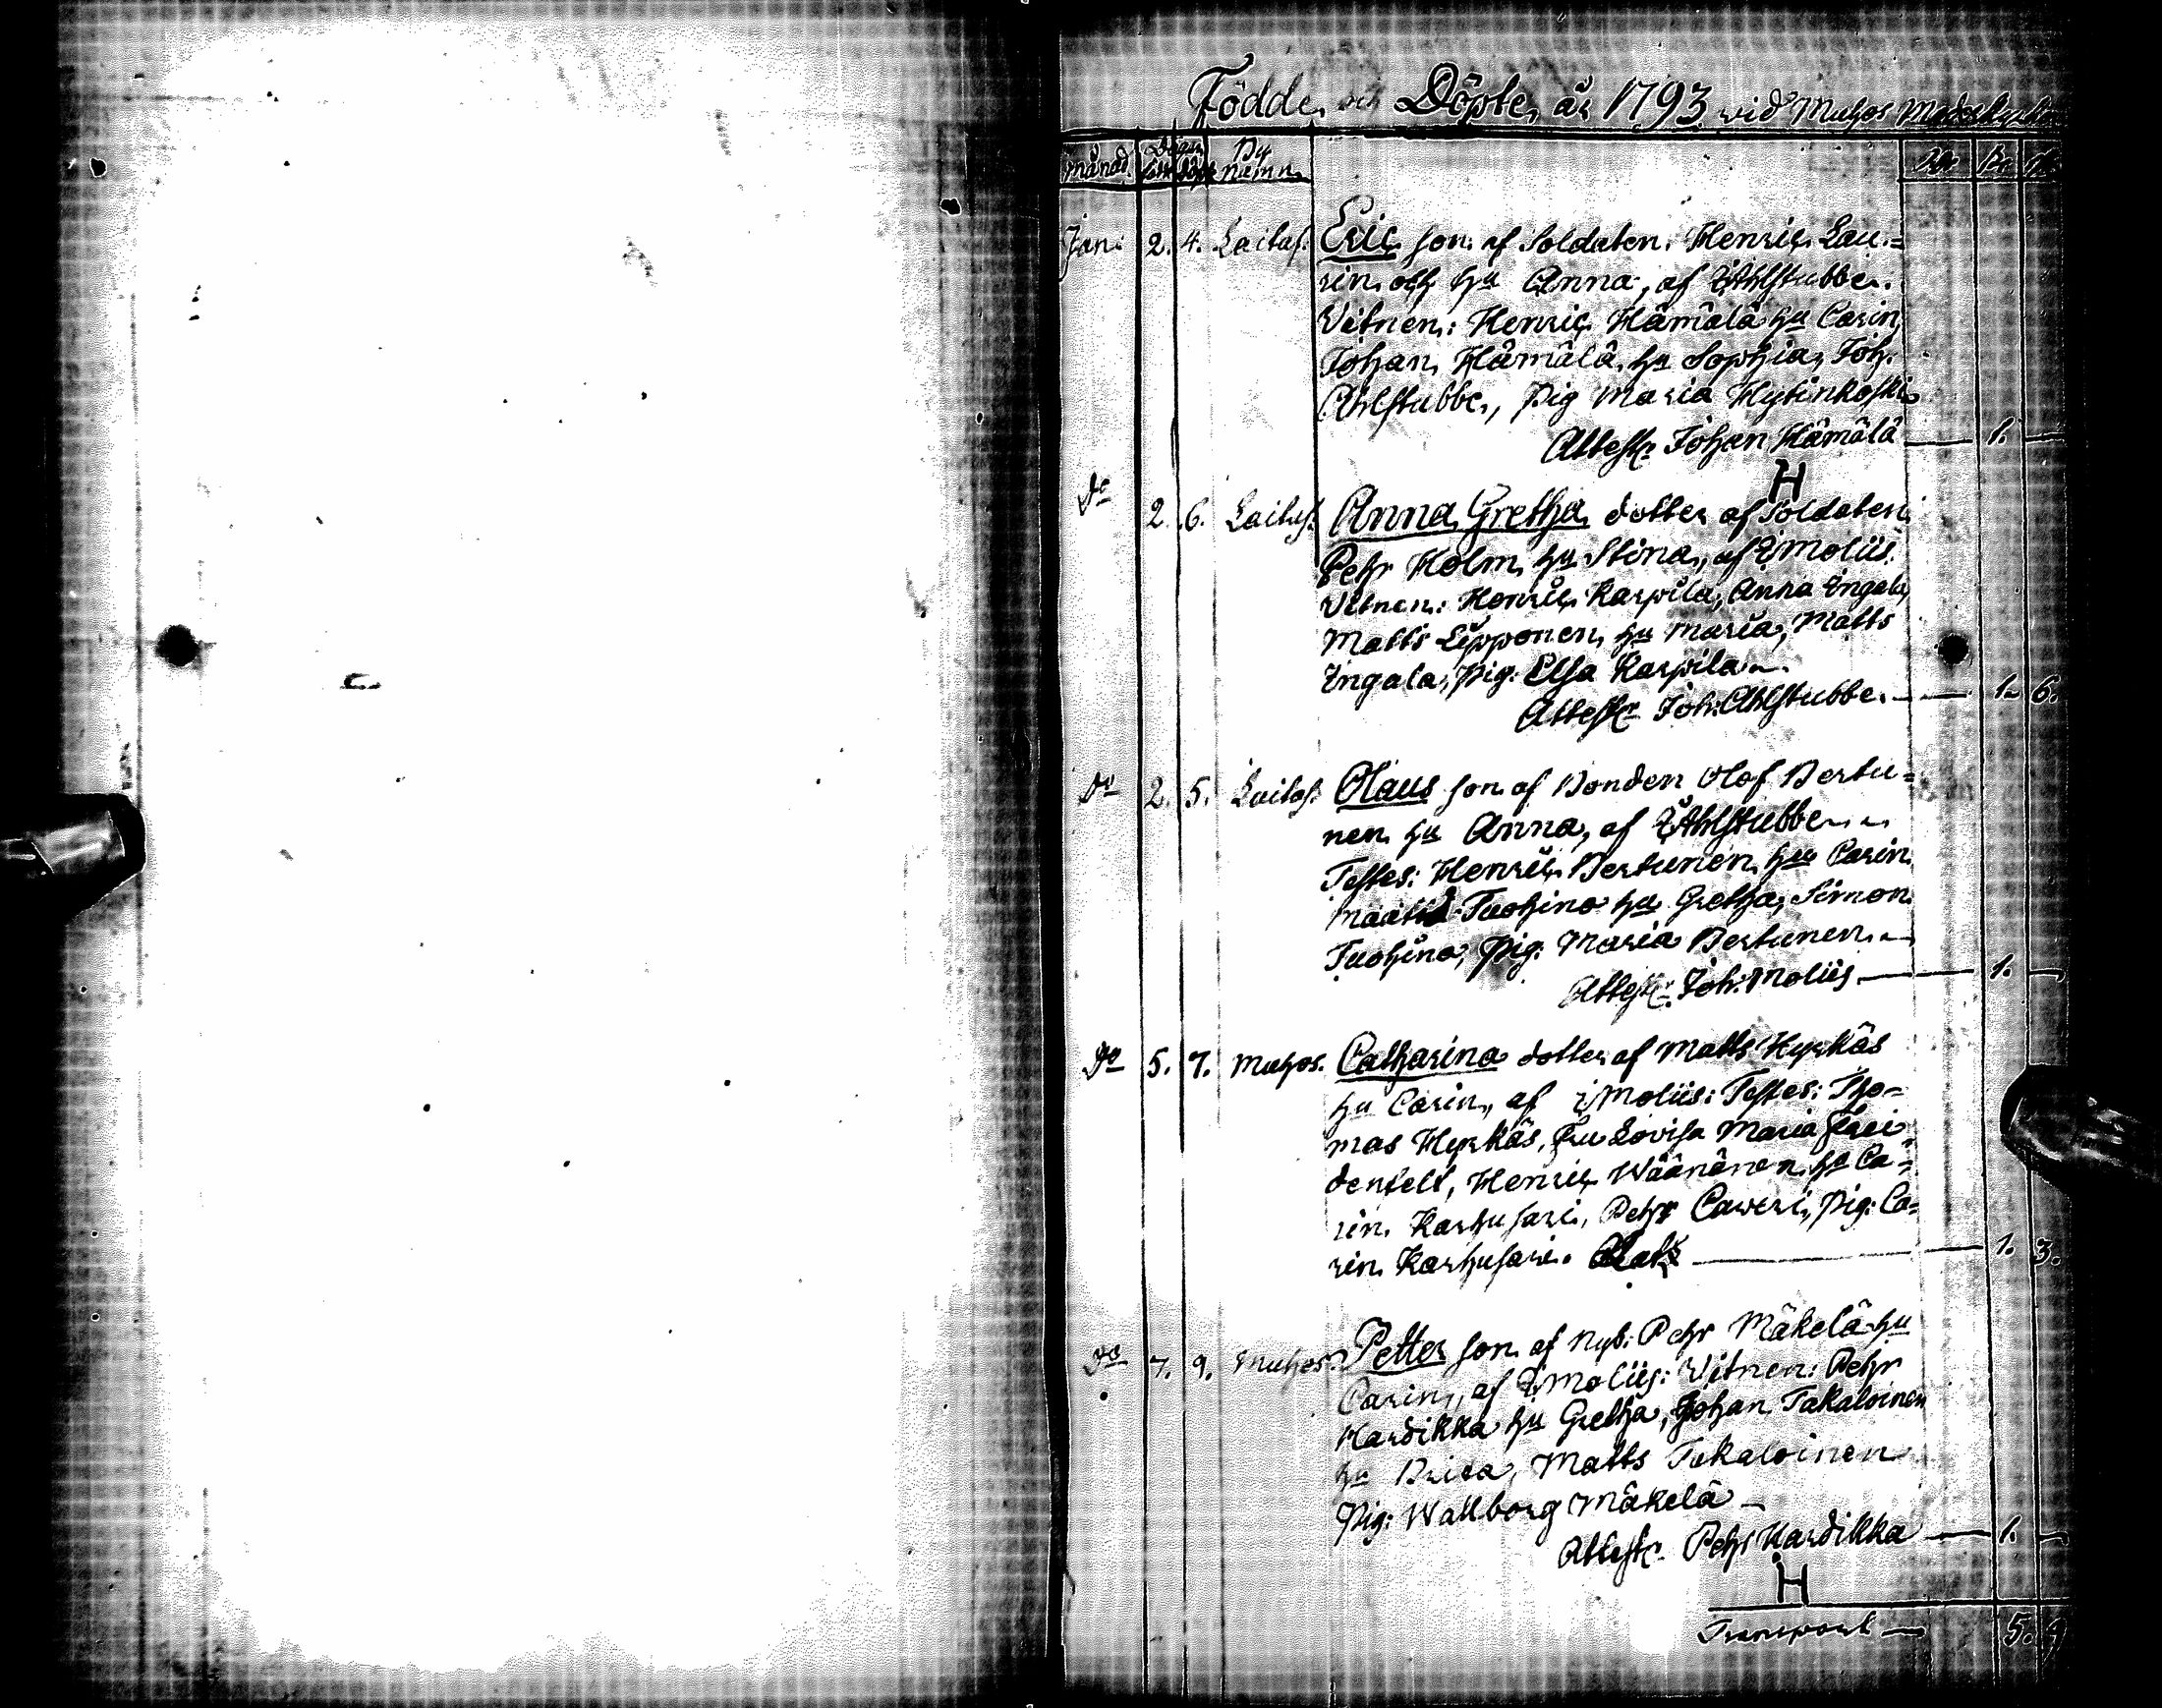 Födde och Döpte år 1793 wid Muhos Moderkyrko
Månad. Dagen född döpt By Namn
Jan: 2. 4. Laitas. Eric son af Soldaten Henric Lau=
rin och hu Anna, af Ahlstubbe.
Vitnen: Henric Hämälä hu Carin,
Johan Hämälä, hu Sophia, Joh.
Ahlstubbe, Pig Maria Hytinkoski
Attestr Johan Hämälä — 1. —
H
Do 2. 6. Laitas. Anna Gretha dotter af Soldaten
Pehr Holm, hu Stina, af Moliis.
Vitnen: Henric Karpila, Anna Ingala,
Matts Lipponen, hu Maria, Matts
Ingala, Pig: Elsa Karpila.
Attestr Joh: Ahlstubbe. — 1. 6.
Do 2. 5. Laitas. Olaus son af Bonden Olof Bertu=
nen hu Anna, af Ahlstubbe.
Testes: Henric Bertunen hu Carin
Tuohino hu Gretha, Simon
Tuohino, Pig: Maria Bertunen.
Attestr. Joh: Moliis — 1. —
Do 5. 7. Muhos. Catharina dotter af Matts Hyrkäs
hu Carin, af Moliis: Testes: Tho=
mas Hyrkäs, Fru Lovisa Maria Frei=
denfelt, Henric Wäänänen, hu Ca=
rin Karhusari, Pehr Caweri, Pig: Ca=
rin Karhusari. — 1. 3.
Do 7. 9. Muhos. Petter son af Nyb: Pehr Mäkelä hu
Carin, af Moliis: Vitnen: Pehr
Kardikka hu Gretha, Johan Takaloinen
hu Brita, Matts Takaloinen
Pig: Wallborg Mäkelä —
Attestr. Pehr Kardikka — 1. —
H
Transport — 5. 9